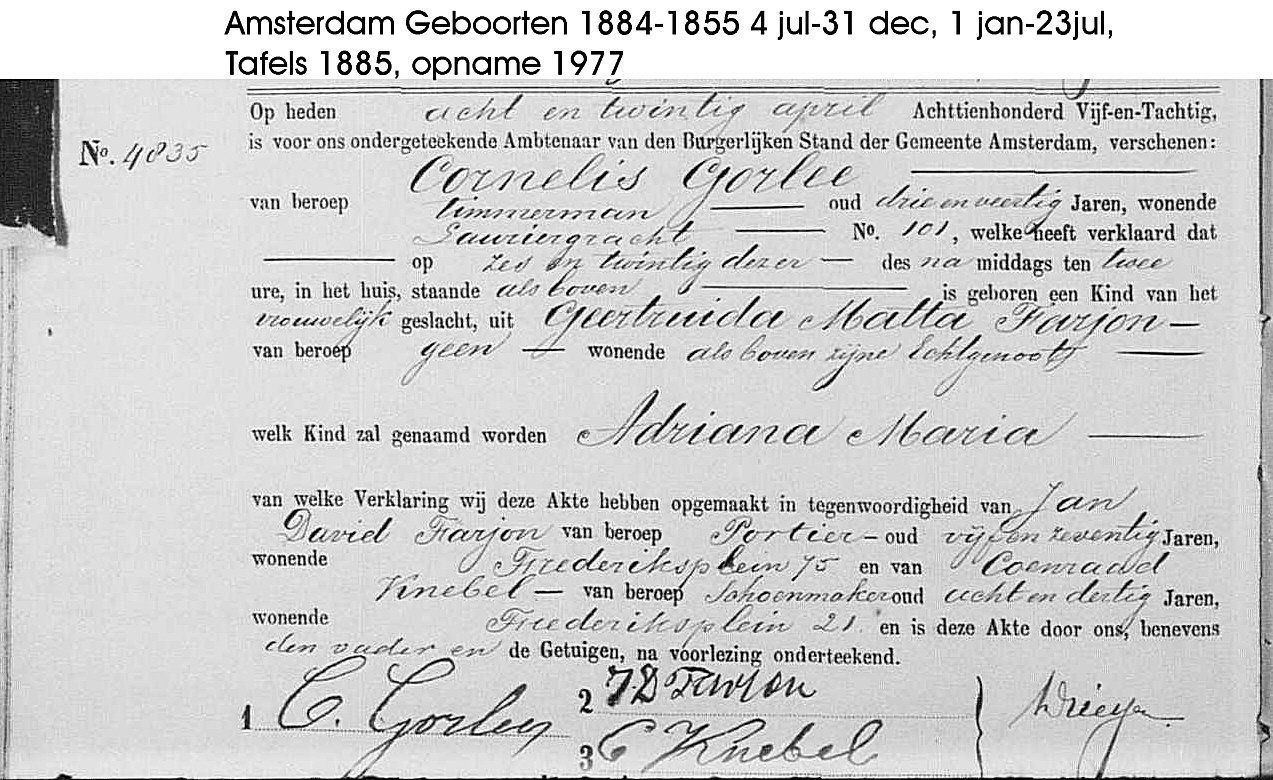 Amsterdam Geboorten 1884-1855 4 jul-31 dec, 1 jan-23jul,
Tafels 1885, opname 1977
Op heden acht en twintig april Achttienhonderd Vijf-en-Tachtig,
No. 4835 is voor ons ondergeteekende Ambtenaar van den Burgerlijken Stand der Gemeente Amsterdam, verschenen:
Cornelis Gorlee
van beroep timmerman oud drie en veertig Jaren, wonende
Lauriergracht No. 101, welke heeft verklaard dat
op zes en twintig dezer des na middags ten twee
ure, in het huis, staande als boven is geboren een Kind van het
vrouwelijk geslacht, uit Geertruida Matta Farjon
van beroep geen wonende als boven zijne Echtgenoot
welk Kind zal genaamd worden Adriana Maria
van welke Verklaring wij deze Akte hebben opgemaakt in tegenwoordigheid van Jan
David Farjon van beroep Portier oud vijf en zeventig Jaren,
wonende Frederiksplein 75 en van Coenraad
Knebel van beroep Schoenmaker oud acht en dertig Jaren,
wonende Frederiksplein 21 en is deze Akte door ons, benevens
den vader en de Getuigen, na voorlezing onderteekend.
1 C. Gorlee
2 J D Farjon
3 C Knebel